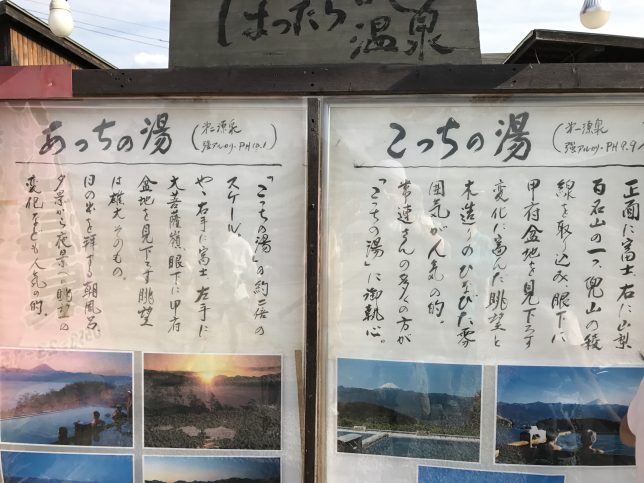 ほったらかし温泉
あっちの湯
(第二源泉
強アルカリ・PH10.1)
「こっちの湯」の約二倍の
スケール。
やゝ右手に富士 左手に
大菩薩嶺、眼下に甲府
盆地を見下ろす眺望
は雄大そのもの。
日の出を拝する朝風呂、
夕景から夜景の眺望の
変化なども人気の的。
こっちの湯
(第一源泉
強アルカリ・PH9.9)
正面に富士 右に山梨
百名山の一つ、兜山の稜
線を取り込み、眼下に
甲府盆地を見下ろす
変化に富んだ眺望と
木造りのひなびた雰
囲気が人気の的。
常連さんの多くの方が
「こっちの湯」に御執心。